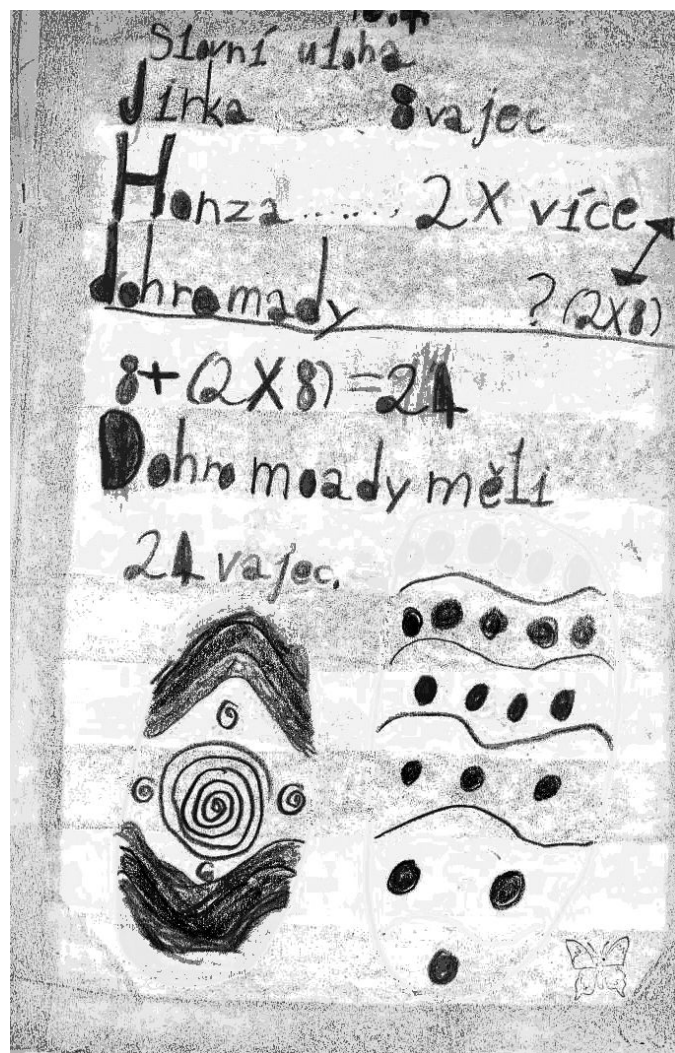 Slovní úloha
Jirka 8 vajec
Honza....... 2X více
dohromady ? (2X8)
8+(2X8)=24
Dohromoady měli
24 vajec.